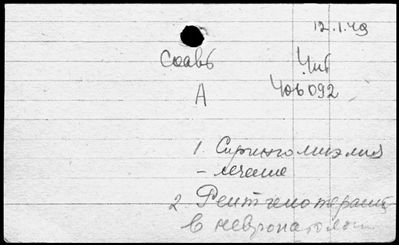 12.1.49
Славб Чит
А Ч06092
1 Сирингомиэлия
- лечение
2. Рентгенотерапия
в невропатологии